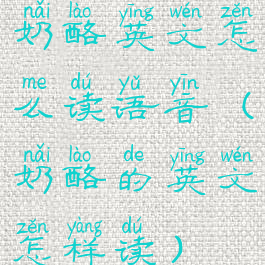 nǎi lào yīng wén zěn
奶酪英文怎
me dú yǔ yīn
么读语音（
nǎi lào de yīng wén
奶酪的英文
zěn yàng dú
怎样读）